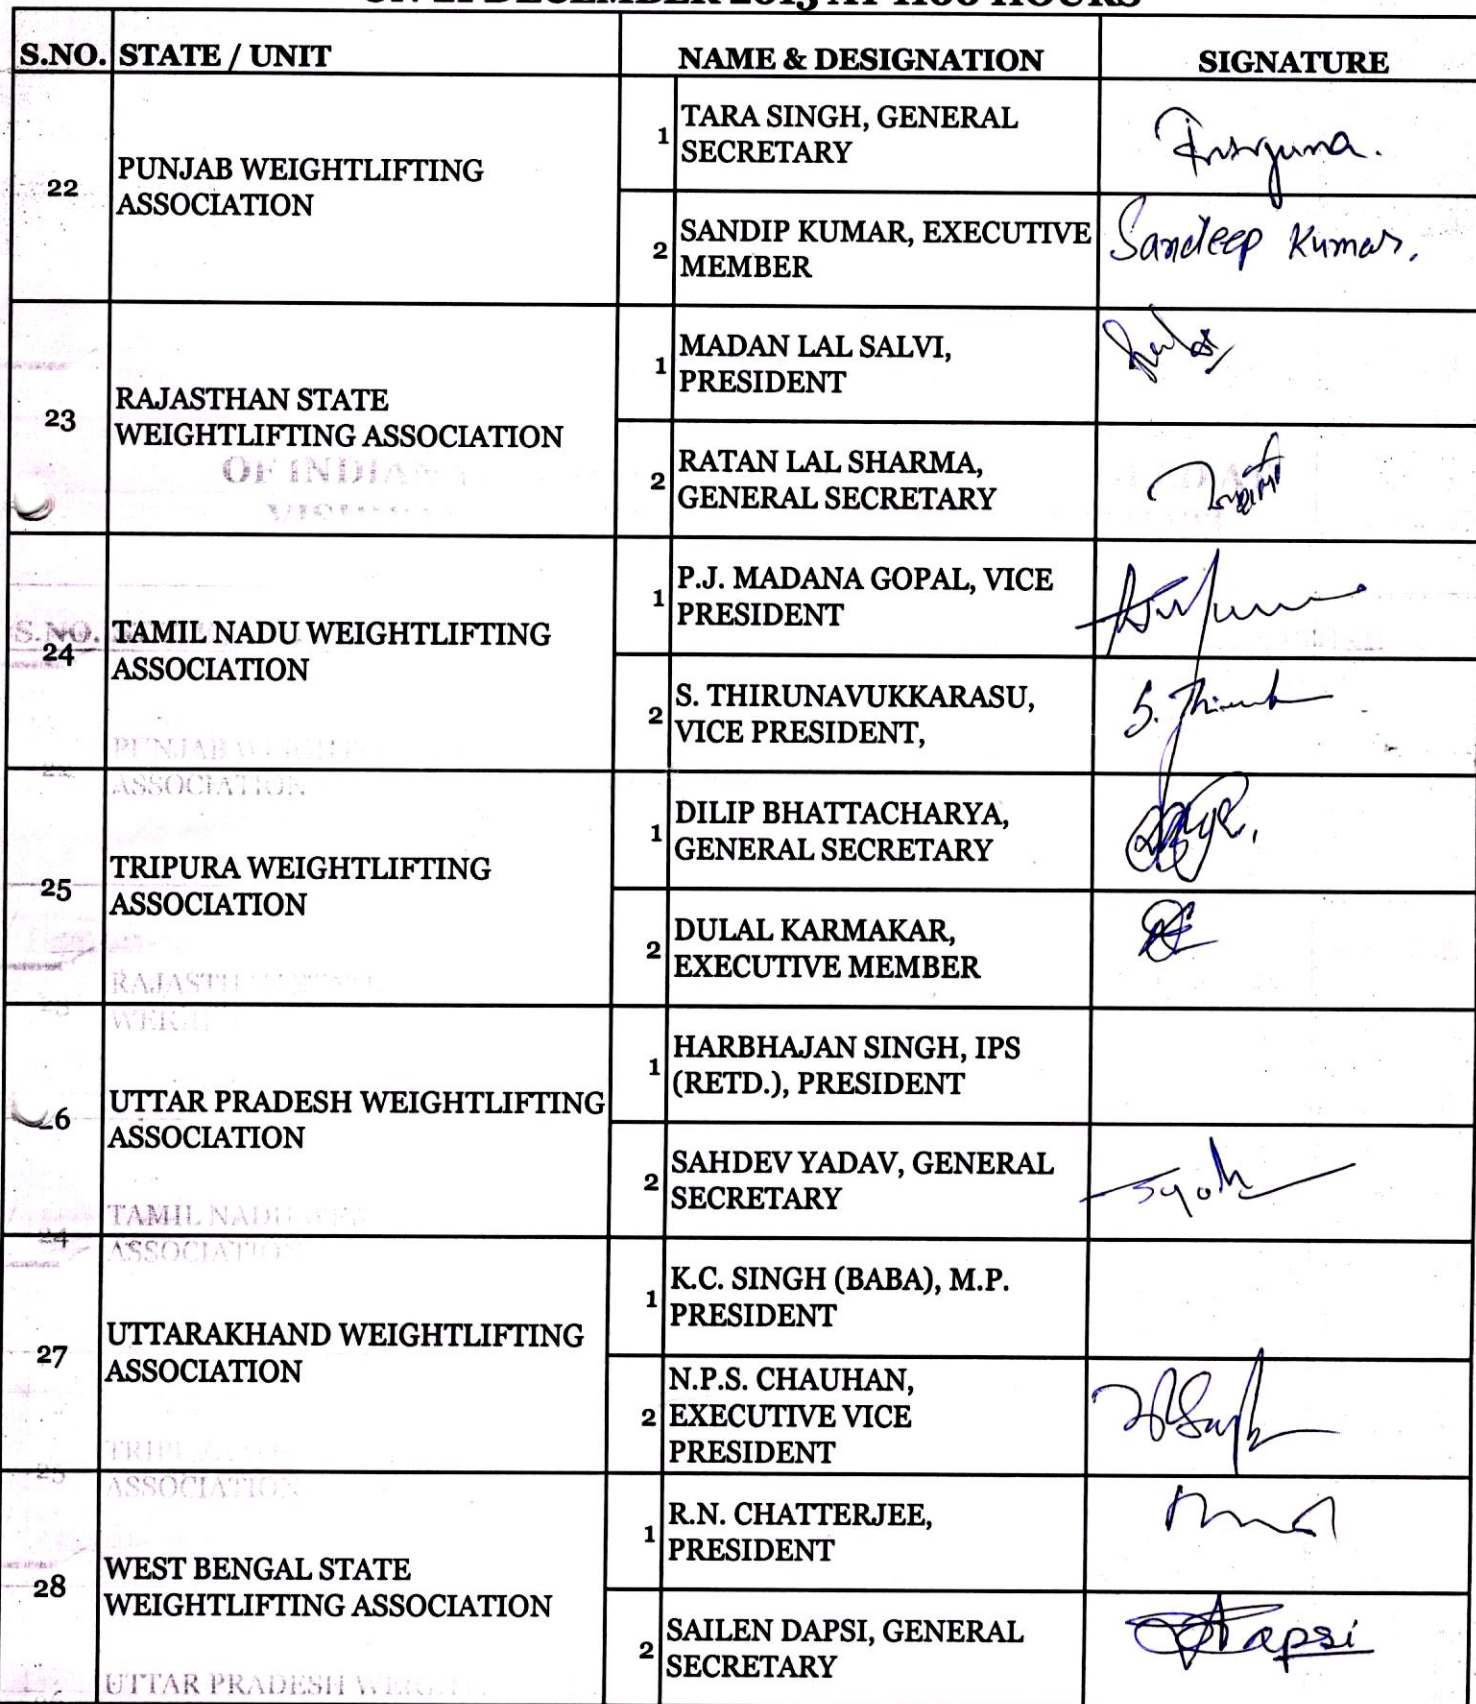 S.NO. STATE / UNIT NAME & DESIGNATION SIGNATURE
22
PUNJAB WEIGHTLIFTING
ASSOCIATION
1
TARA SINGH, GENERAL
SECRETARY
2
SANDIP KUMAR, EXECUTIVE
MEMBER
Sandeep Kumar.
23
RAJASTHAN STATE
WEIGHTLIFTING ASSOCIATION
OF INDIA
1
MADAN LAL SALVI,
PRESIDENT
2
RATAN LAL SHARMA,
GENERAL SECRETARY
S.NO.
24
TAMIL NADU WEIGHTLIFTING
ASSOCIATION
1
P.J. MADANA GOPAL, VICE
PRESIDENT
2
S. THIRUNAVUKKARASU,
VICE PRESIDENT,
PUNJAB
ASSOCIATION
25
TRIPURA WEIGHTLIFTING
ASSOCIATION
1
DILIP BHATTACHARYA,
GENERAL SECRETARY
2
DULAL KARMAKAR,
EXECUTIVE MEMBER
6
UTTAR PRADESH WEIGHTLIFTING
ASSOCIATION
1
HARBHAJAN SINGH, IPS
(RETD.), PRESIDENT
2
SAHDEV YADAV, GENERAL
SECRETARY
TAMIL NADU
24
ASSOCIATION
27
UTTARAKHAND WEIGHTLIFTING
ASSOCIATION
1
K.C. SINGH (BABA), M.P.
PRESIDENT
2
N.P.S. CHAUHAN,
EXECUTIVE VICE
PRESIDENT
25
ASSOCIATION
28
WEST BENGAL STATE
WEIGHTLIFTING ASSOCIATION
1
R.N. CHATTERJEE,
PRESIDENT
2
SAILEN DAPSI, GENERAL
SECRETARY
Dapsi
UTTAR PRADESH